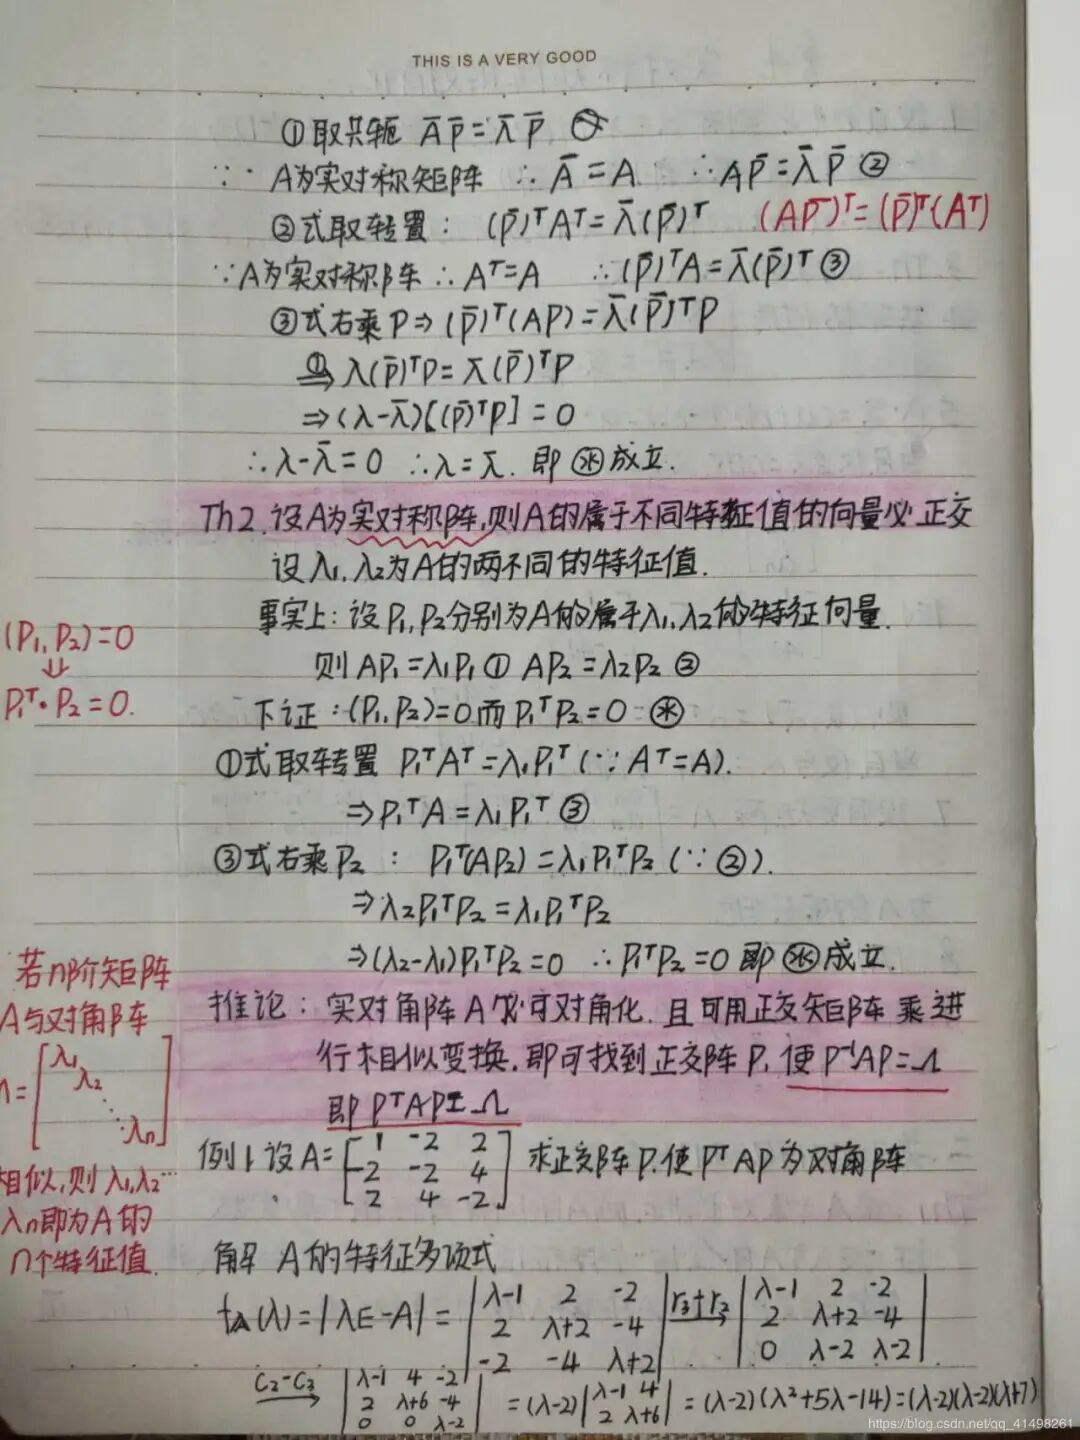 THIS IS A VERY GOOD
①取共轭 A̅P̅=λ̅P̅
∵ A为实对称矩阵 ∴A̅=A ∴AP̅=λ̅P̅ ②
②式取转置: (P̅)ᵀAᵀ=λ̅(P̅)ᵀ (AP̅)ᵀ=(P̅)ᵀ(Aᵀ)
∵A为实对称阵 ∴Aᵀ=A ∴(P̅)ᵀA=λ̅(P̅)ᵀ ③
③式右乘P⇒(P̅)ᵀ(AP)=λ̅(P̅)ᵀP
①⇒ λ(P̅)ᵀP=λ̅(P̅)ᵀP
⇒(λ-λ̅)[(P̅)ᵀP]=0
∴λ-λ̅=0 ∴λ=λ̅. 即㊌成立.
Th2.设A为实对称阵,则A的属于不同特征值的向量必正交
设λ₁,λ₂为A的两不同的特征值.
事实上:设P₁,P₂分别为A的属于λ₁,λ₂的特征向量.
(P₁,P₂)=0
⇓
P₁ᵀ·P₂=0.
则 AP₁=λ₁P₁ ① AP₂=λ₂P₂ ②
下证:(P₁,P₂)=0而P₁ᵀP₂=0 ㊌
①式取转置 P₁ᵀAᵀ=λ₁P₁ᵀ(∵Aᵀ=A).
⇒P₁ᵀA=λ₁P₁ᵀ ③
③式右乘P₂: P₁ᵀ(AP₂)=λ₁P₁ᵀP₂(∵②).
⇒λ₂P₁ᵀP₂=λ₁P₁ᵀP₂
⇒(λ₂-λ₁)P₁ᵀP₂=0 ∴P₁ᵀP₂=0即㊌成立.
推论:实对角阵A必可对角化.且可用正交矩阵乘进
行相似变换.即可找到正交阵P,使P⁻¹AP=Λ
即PᵀAP=Λ
若n阶矩阵
A与对角阵
Λ=[λ₁ λ₂ ⋱ λn]
相似,则λ₁,λ₂…
λn即为A的
n个特征值.
例1.设A=[1 -2 2
-2 -2 4
2 4 -2] 求正交阵P.使PᵀAP为对角阵
解 A的特征多项式
f_A(λ)=|λE-A|=|λ-1 2 -2
2 λ+2 -4
-2 -4 λ+2| r₃+r₂→ |λ-1 2 -2
2 λ+2 -4
0 λ-2 λ-2|
c₂-c₃→ |λ-1 4 -2
2 λ+6 -4
0 0 λ-2| =(λ-2)|λ-1 4
2 λ+6| =(λ-2)(λ²+5λ-14)=(λ-2)(λ-2)(λ+7)
https://blog.csdn.net/qq_41498261